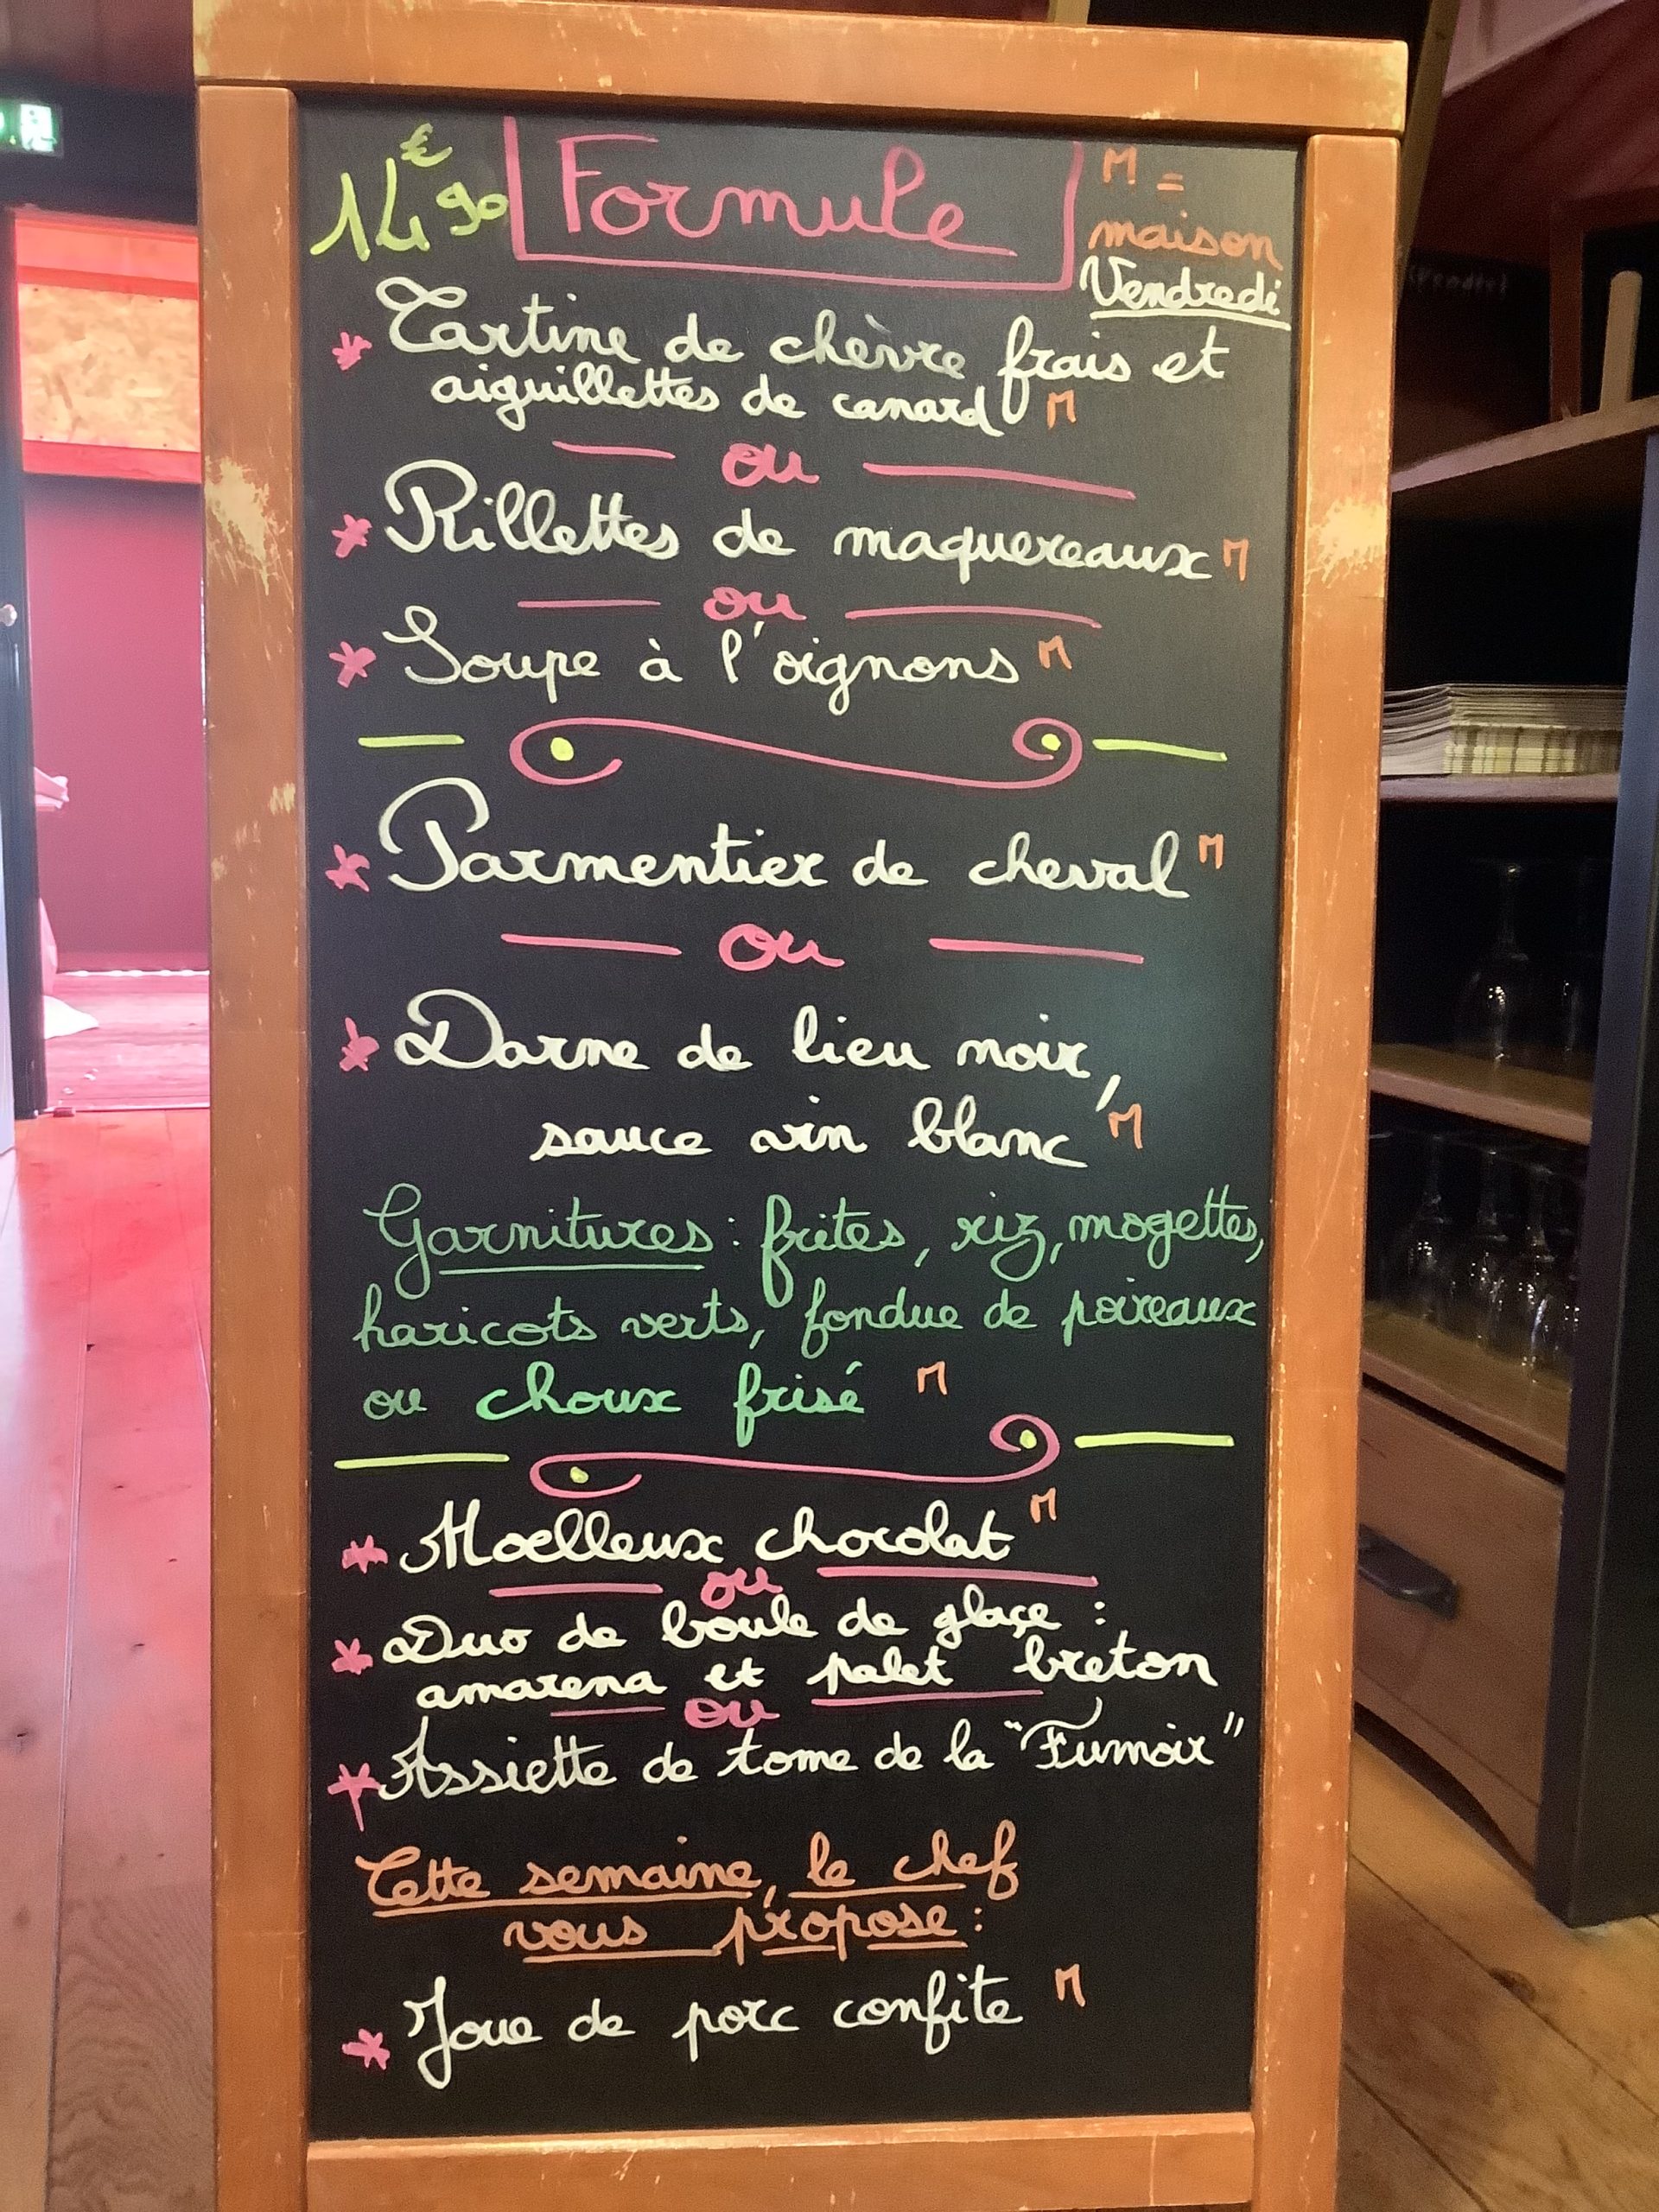 14€90 Formule M =
maison
Vendredi
Tartine de chèvre frais et
aiguillettes de canard M
ou
Rillettes de maquereaux M
ou
Soupe à l'oignons M
Parmentier de cheval M
ou
Darne de lieu noir,
sauce vin blanc M
Garnitures : frites, riz, mogettes,
haricots verts, fondue de poireaux
ou choux frisé M
Moelleux chocolat M
ou
Duo de boule de glaçe :
amarena et palet breton
ou
Assiette de tome de la "Fumoir"
Cette semaine, le chef
vous propose :
Joue de porc confite M